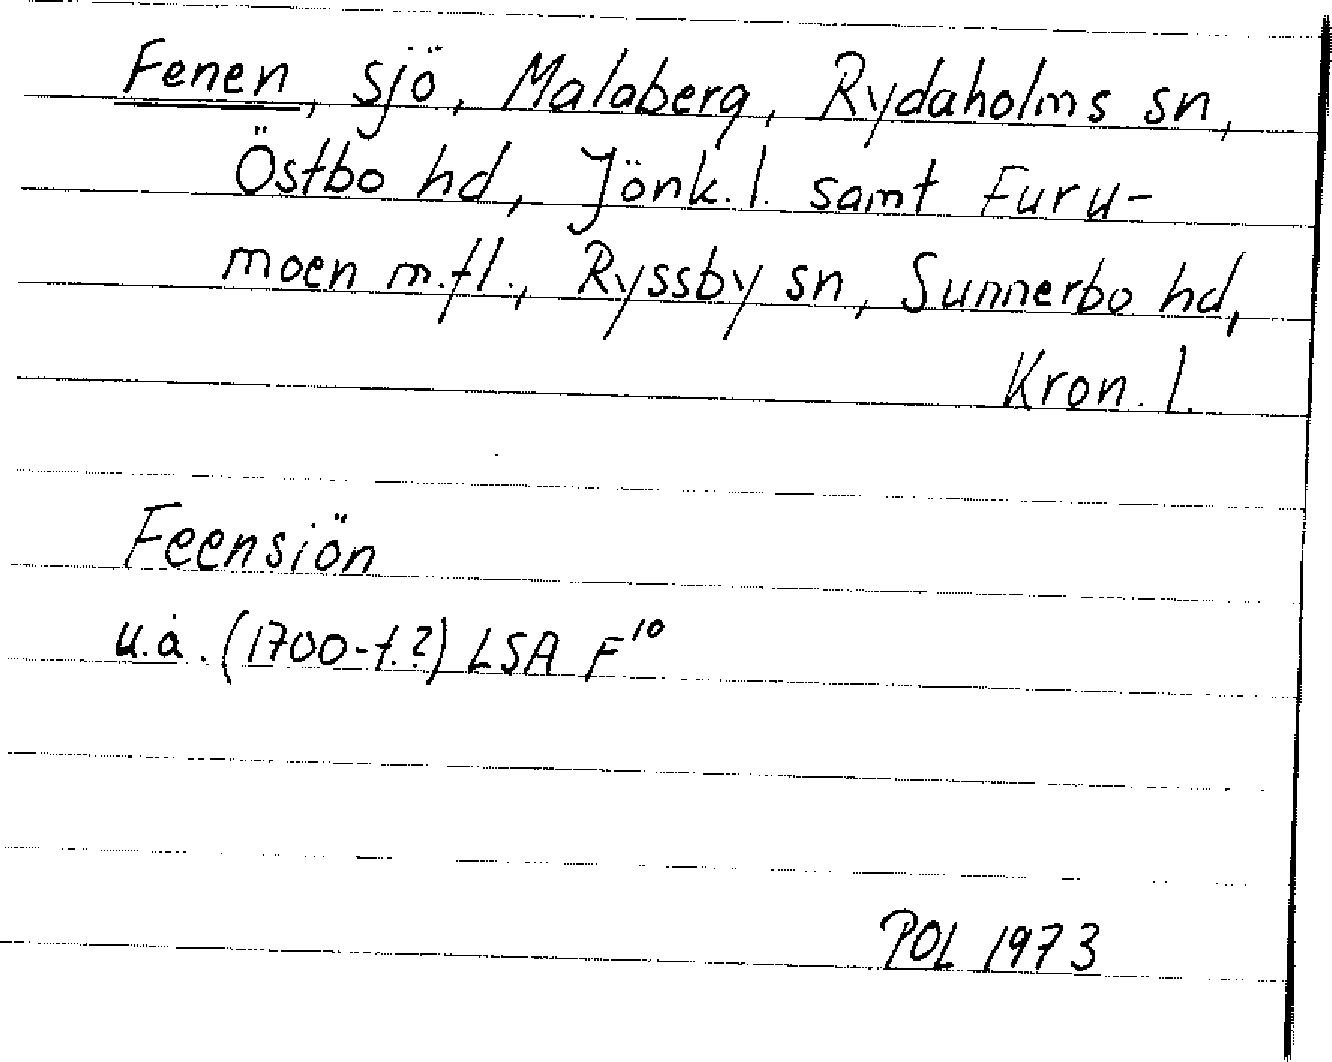 Fenen, sjö, Malaberg, Rydaholms sn,
Östbo hd, Jönk. l. samt Furu-
moen m.fl., Ryssby sn, Sunnerbo hd,
Kron. l.
Feensiön
u.å. (1700-t.?) LSA F¹⁰
POL 1973